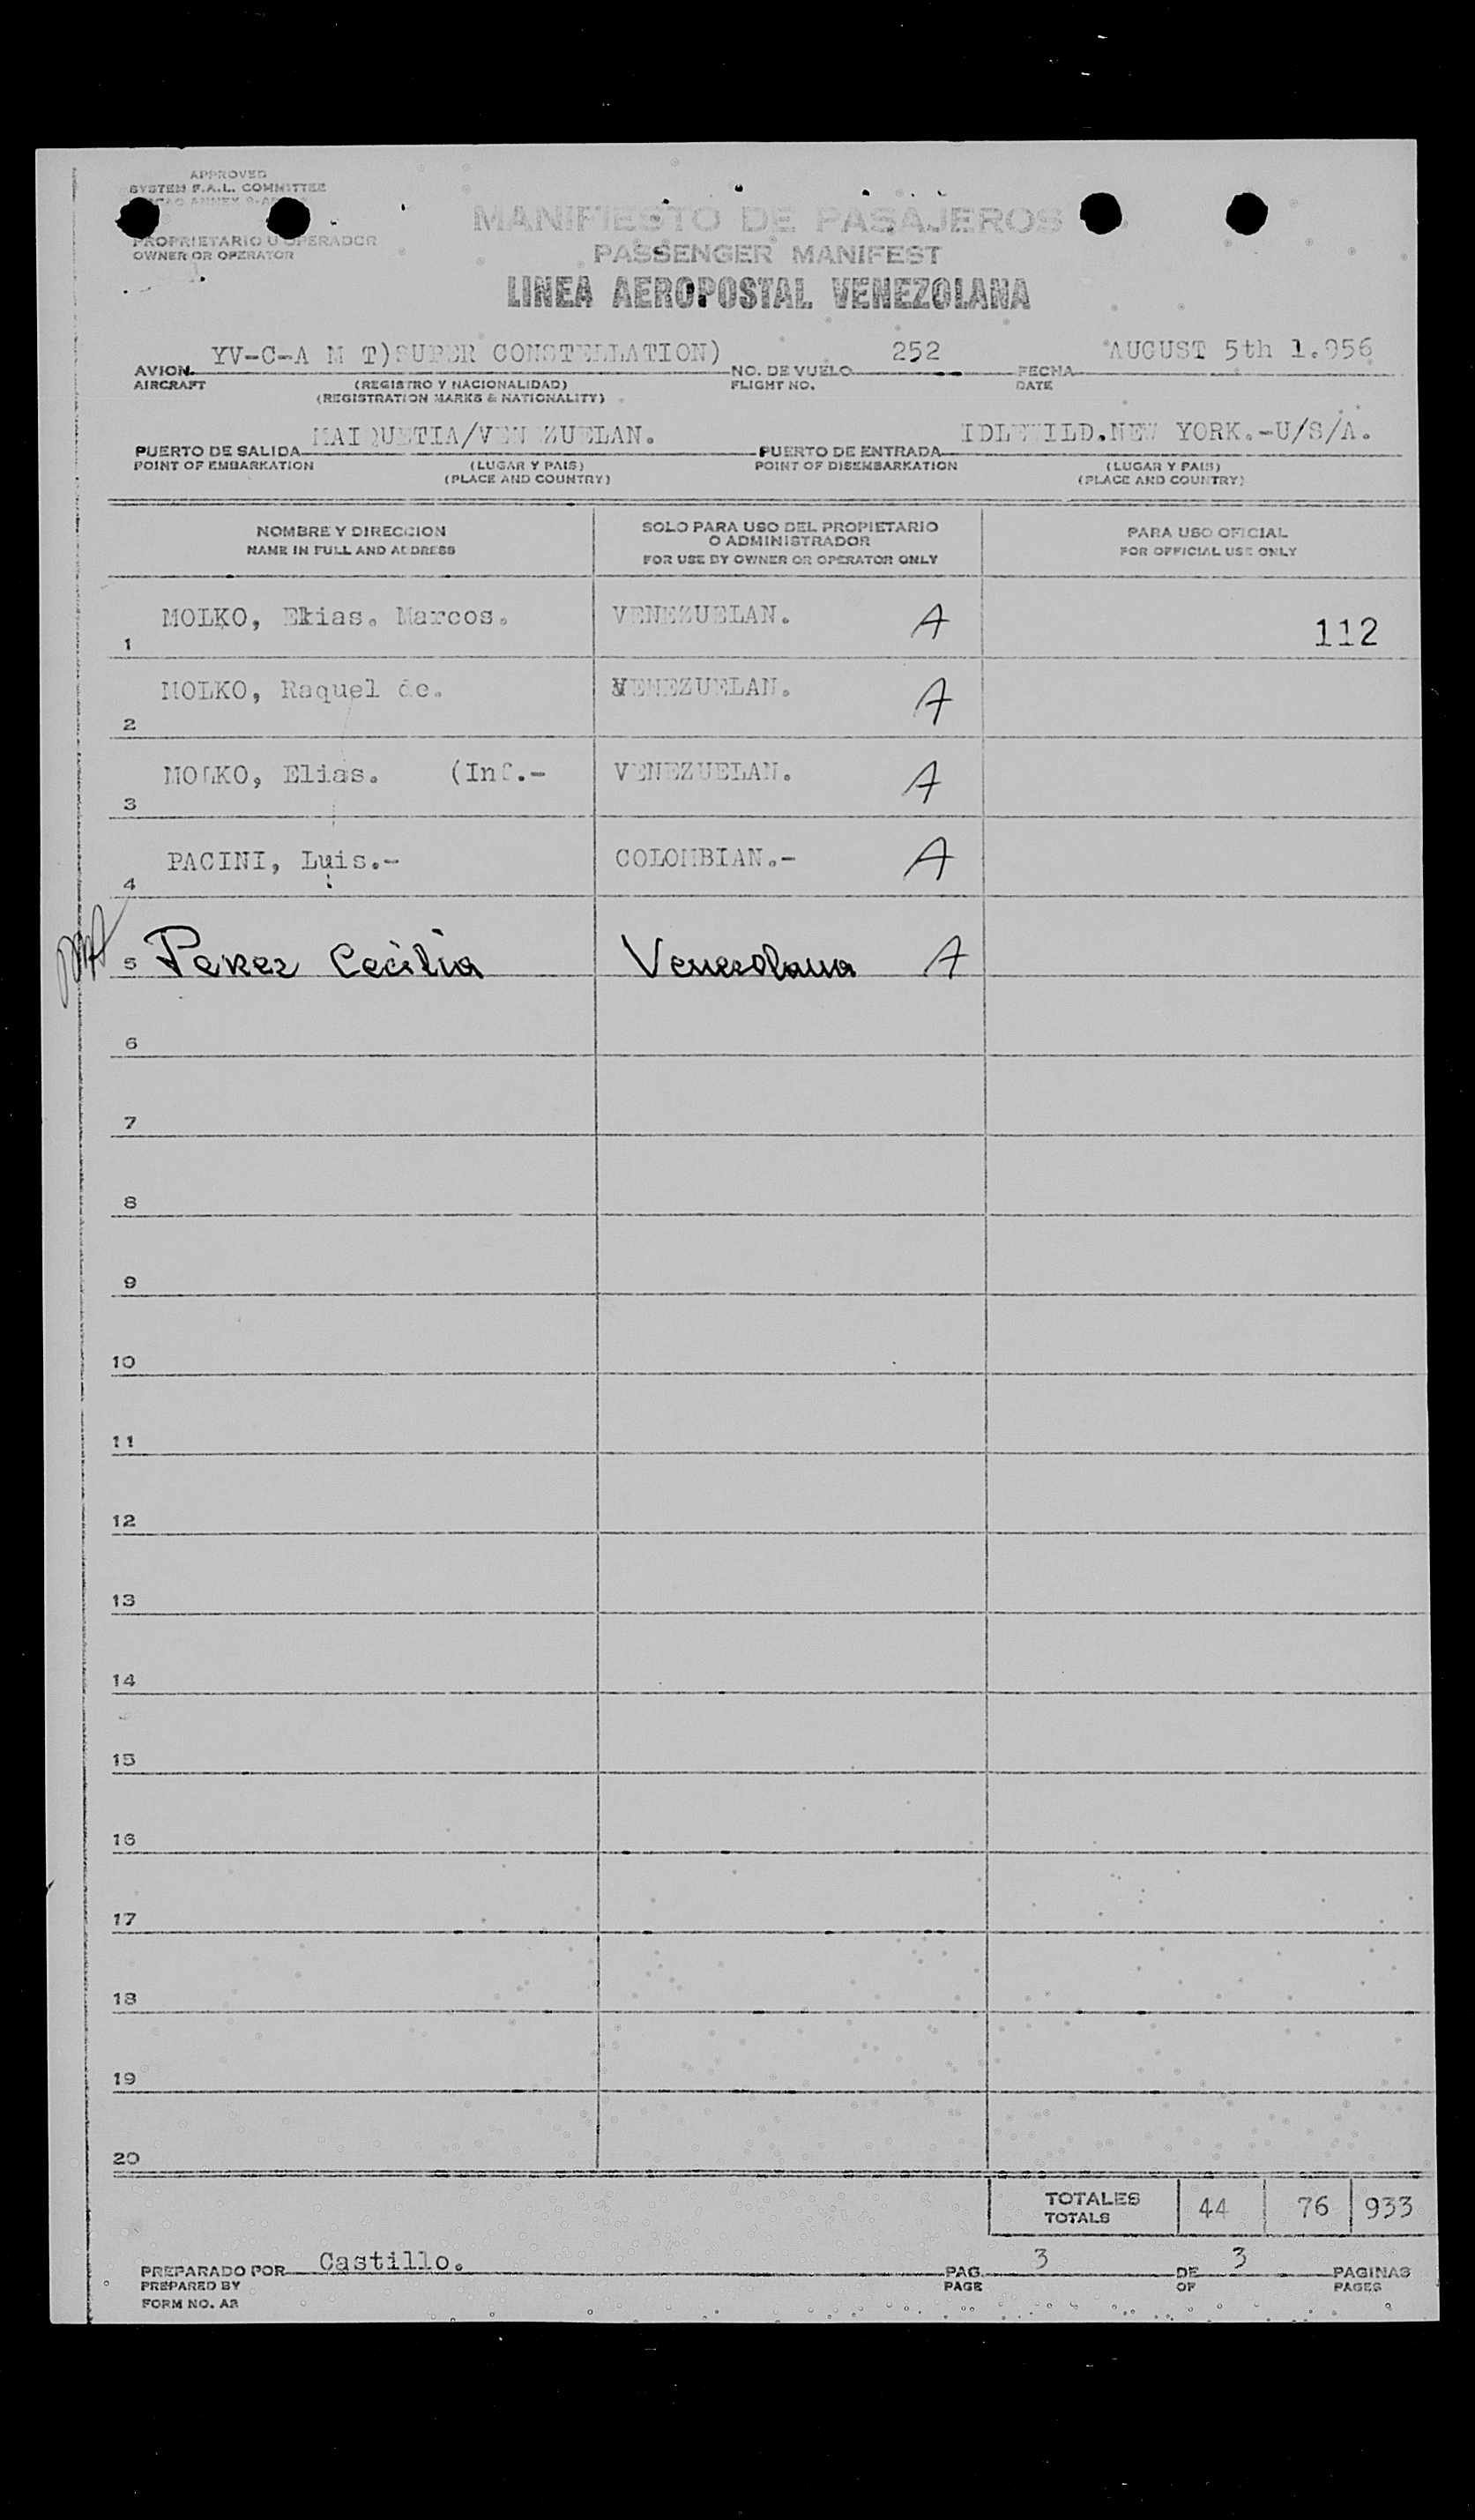 APPROVED
SYSTEM F.A.L. COMMITTEE
ANNEX
MANIFIESTO DE PASAJEROS
PROPRIETARIO U OPERADOR
OWNER OR OPERATOR
PASSENGER MANIFEST
LINEA AEROPOSTAL VENEZOLANA
AVION YV-C-A M T)SUPER CONSTELLATION) NO. DE VUELO 252 FECHA AUGUST 5th 1.956
AIRCRAFT (REGISTRO Y NACIONALIDAD) FLIGHT NO. DATE
(REGISTRATION MARKS & NATIONALITY)
PUERTO DE SALIDA MAIQUETIA/VENEZUELAN. PUERTO DE ENTRADA IDLEWILD.NEW YORK.-U/S/A.
POINT OF EMBARKATION (LUGAR Y PAIS) POINT OF DISEMBARKATION (LUGAR Y PAIS)
(PLACE AND COUNTRY) (PLACE AND COUNTRY)
NOMBRE Y DIRECCION SOLO PARA USO DEL PROPIETARIO O ADMINISTRADOR PARA USO OFICIAL
NAME IN FULL AND ADDRESS FOR USE BY OWNER OR OPERATOR ONLY FOR OFFICIAL USE ONLY
1 MOLKO, Ekias. Marcos. VENEZUELAN. A 112
2 MOLKO, Raquel de. VENEZUELAN. A
3 MOLKO, Elias. (Inf.- VENEZUELAN. A
4 PACINI, Luis.- COLOMBIAN.- A
5 Perez Cecilia Venezolana A
6
7
8
9
10
11
12
13
14
15
16
17
18
19
20
TOTALES 44 76 933
TOTALS
PREPARADO POR Castillo. PAG. 3 DE 3 PAGINAS
PREPARED BY PAGE OF PAGES
FORM NO. A2